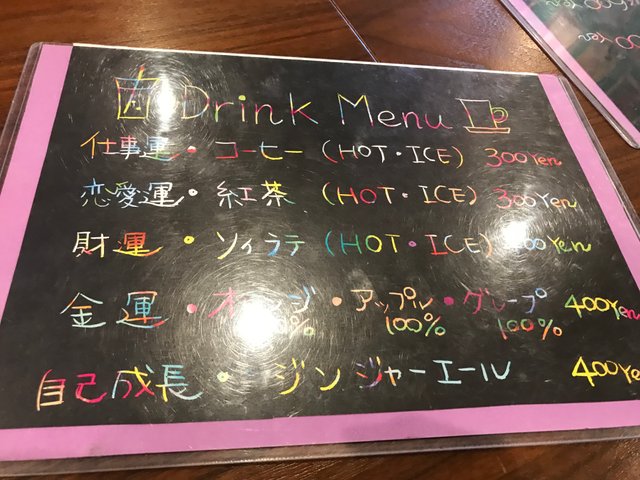 Drink Menu
仕事運・コーヒー (HOT・ICE) 300Yen
恋愛運・紅茶 (HOT・ICE) 300Yen
財運・ソイラテ (HOT・ICE) 00Yen
金運・オレンジ・アップル・グレープ 400Yen
% 100% 100%
自己成長・ジンジャーエール 400Ye